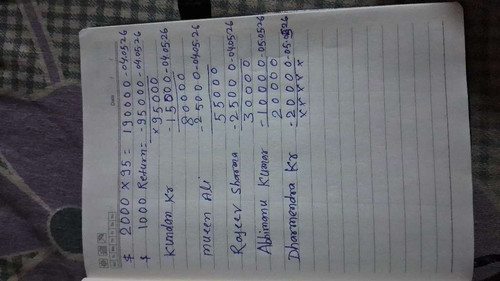 $ 2000 × 95 = 190000-04.05.26
$ 1000 Return = -95000-04.05.26
×95000
Kundan Kr -15000-04.05.26
80000
mueen Ali -25000-04.05.26
55000
Rajeev Sharma -25000-04.05.26
30000
Abhimanu Kumar -10000-05.05.26
20000
Dharmendra Kr -20000-05.05.26
×××××